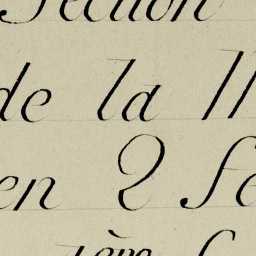 Section
de la
en 2
1ère